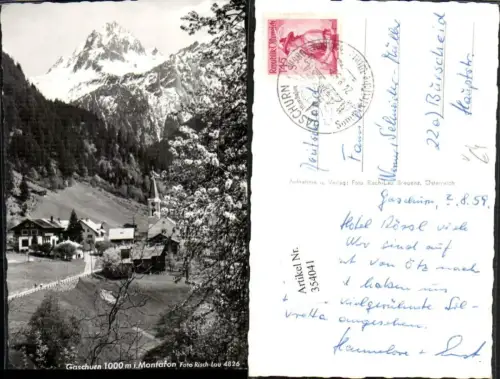 Gaschurn 1000 m i. Montafon Foto Risch-Lau 4826
GASCHURN
Deutschland
Fam.
Werner Schneider-Müller
22a) Bürscheid
Hauptstr.
Aufnahme u. Verlag: Foto Risch-Lau Bregenz, Österreich
Artikel Nr.
354041
Gaschurn, 2.8.59
Hotel Rössl viele
Wir sind auf
von Ötz nach
+ haben uns
vielgerühmte Sil-
vretta angesehen.
Hannelore + Ernst